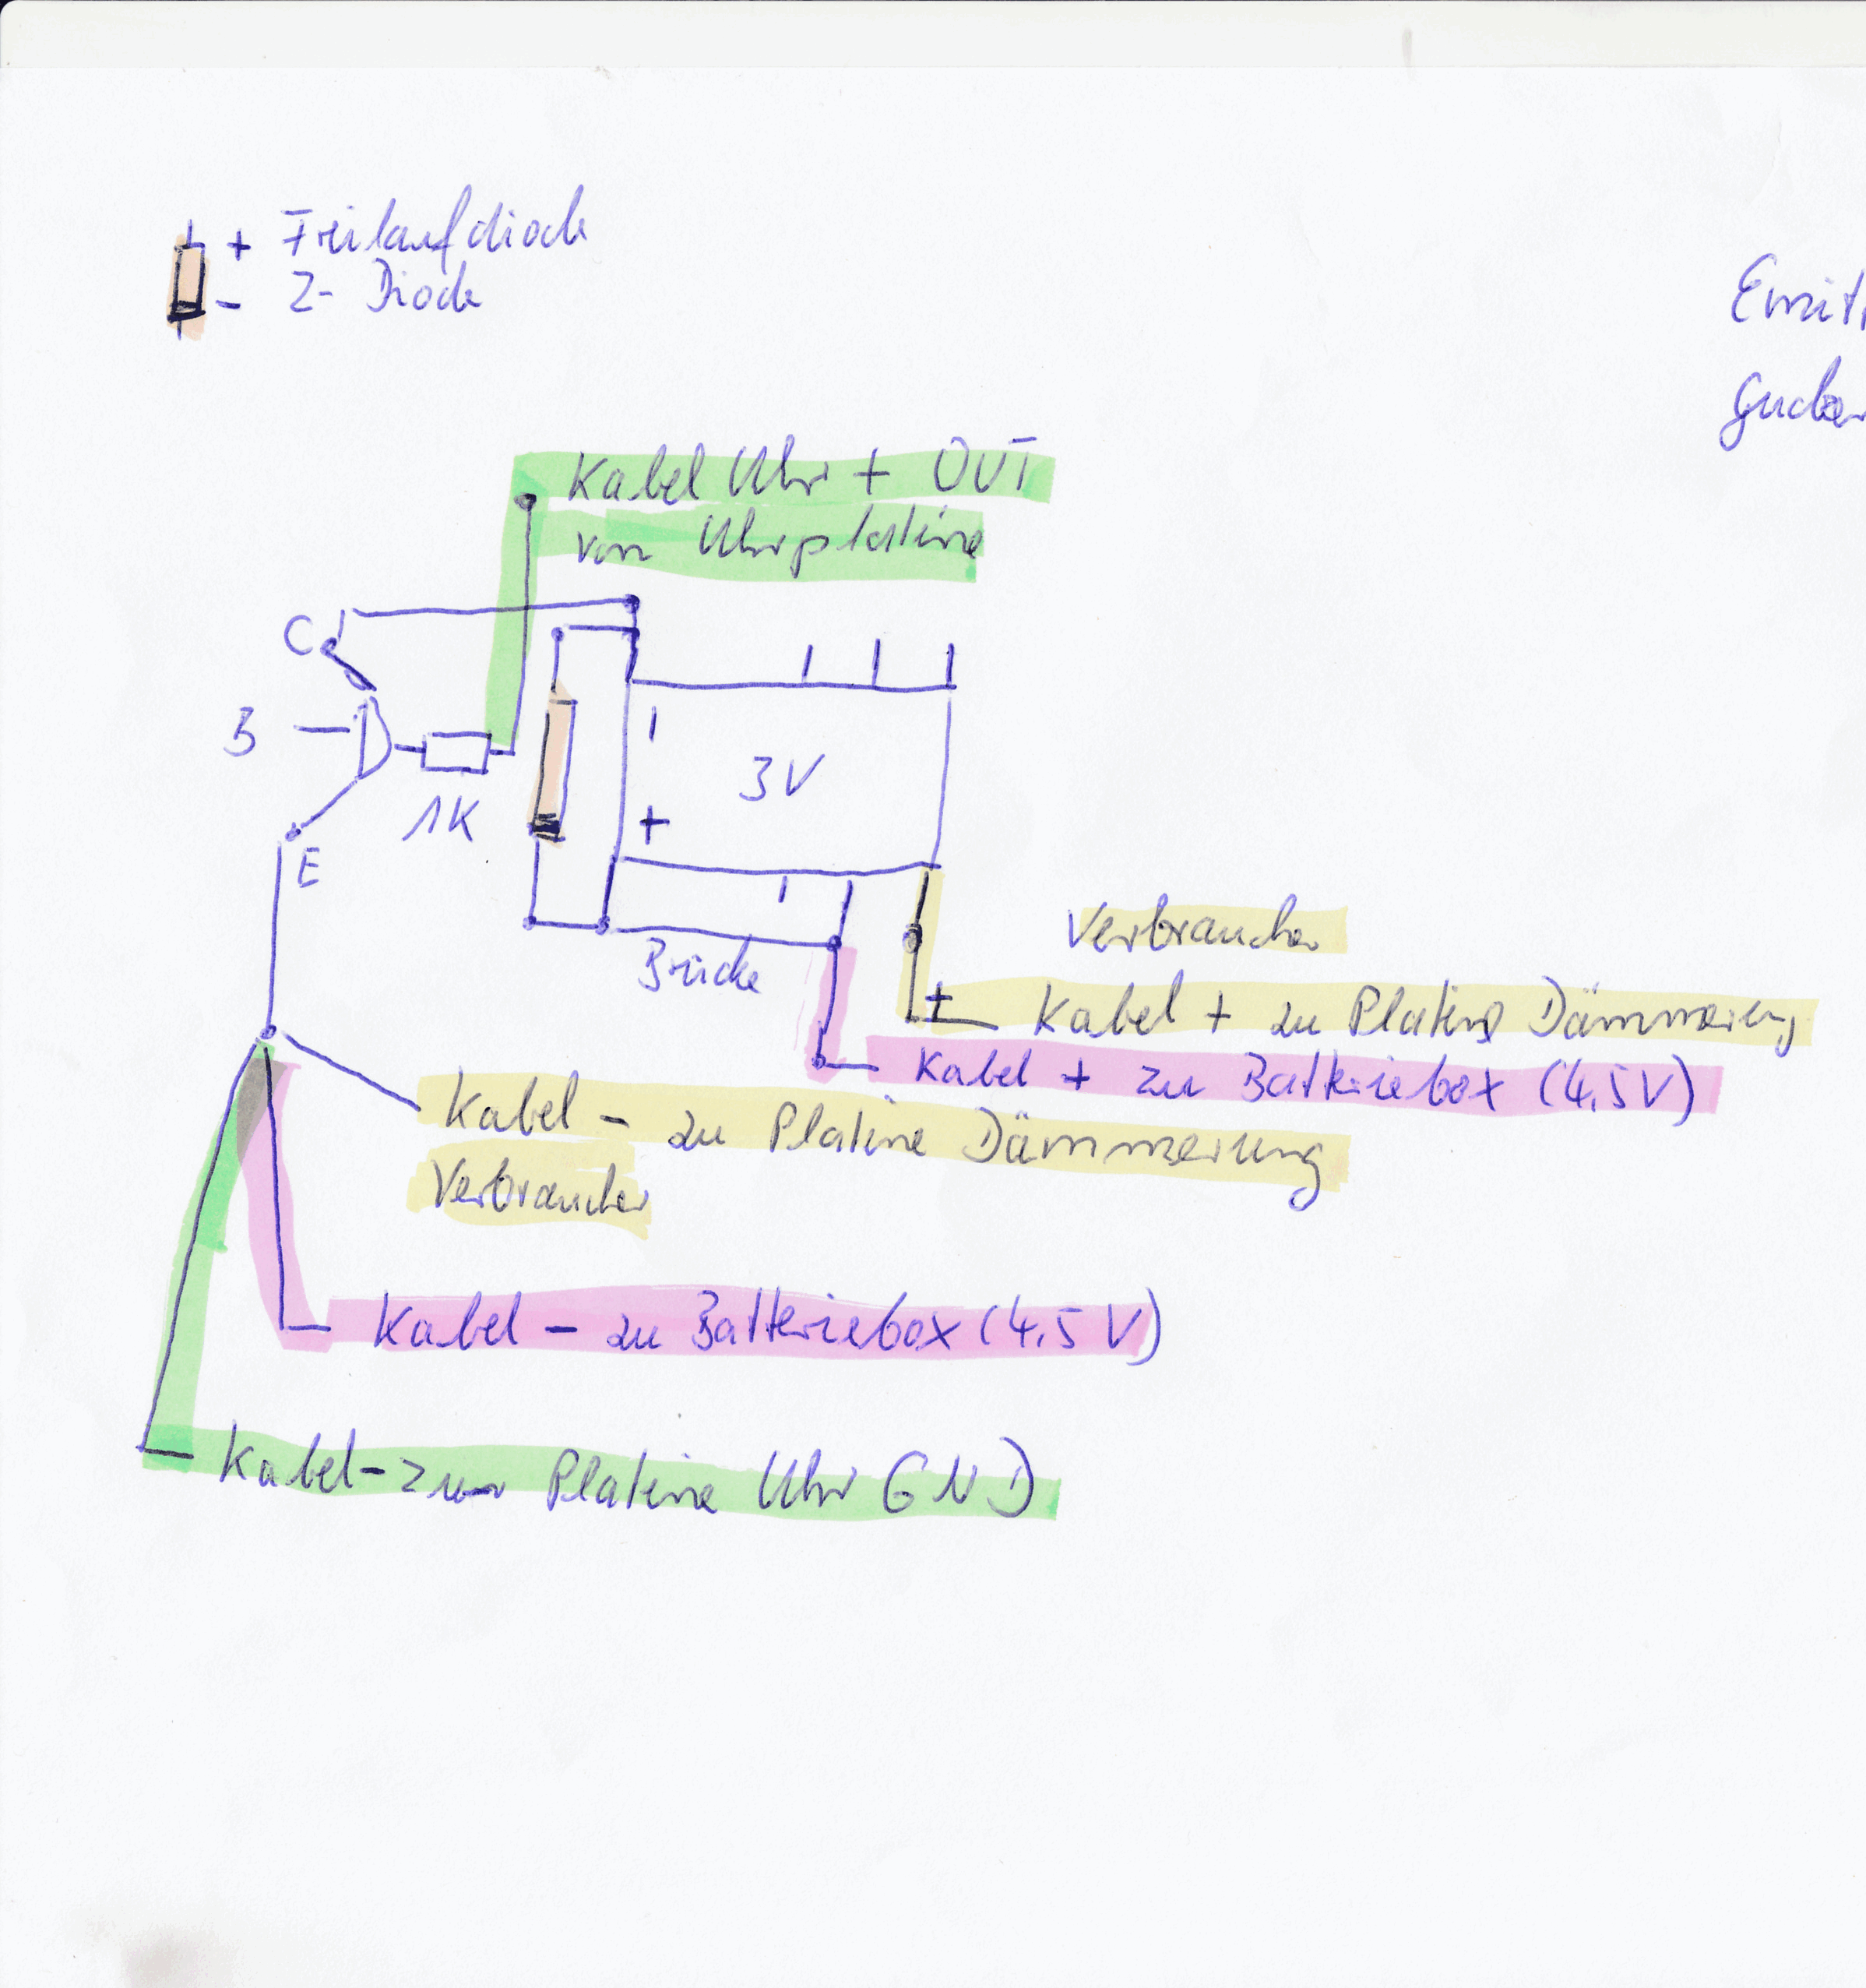 + Freilaufdiode
- Z-Diode
Emit
Gucke
Kabel Uhr + OUT
von Uhrplatine
C
B
1K
E
-
3V
+
Brücke
Verbraucher
+
Kabel + zu Platine Dämmerung
Kabel + zu Batteriebox (4,5V)
Kabel - zu Platine Dämmerung
Verbraucher
Kabel - zu Batteriebox (4,5 V)
Kabel - zur Platine Uhr GND